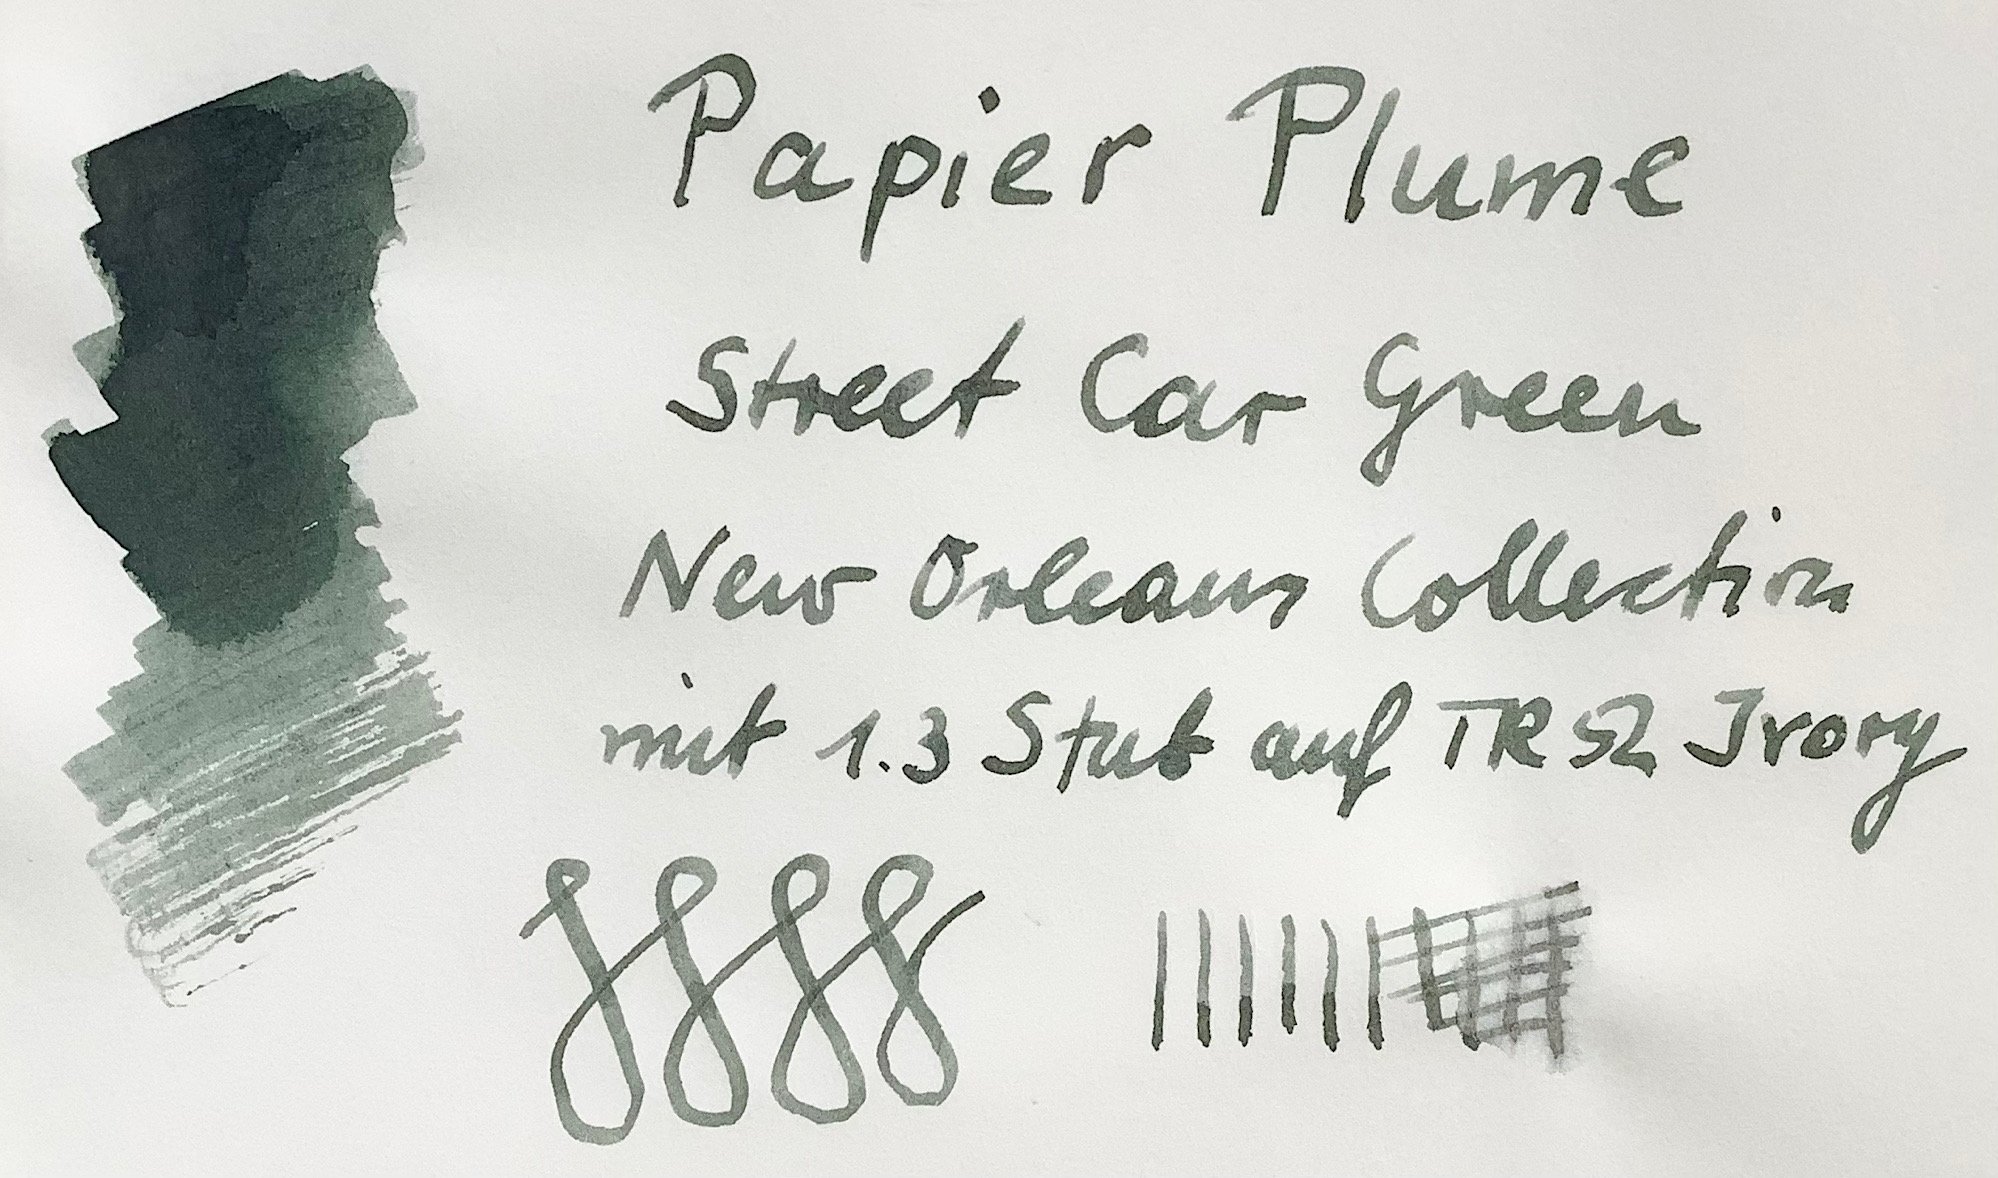 Papier Plume
Street Car Green
New Orleans Collection
mit 1.3 Stub auf TR 52 Ivory